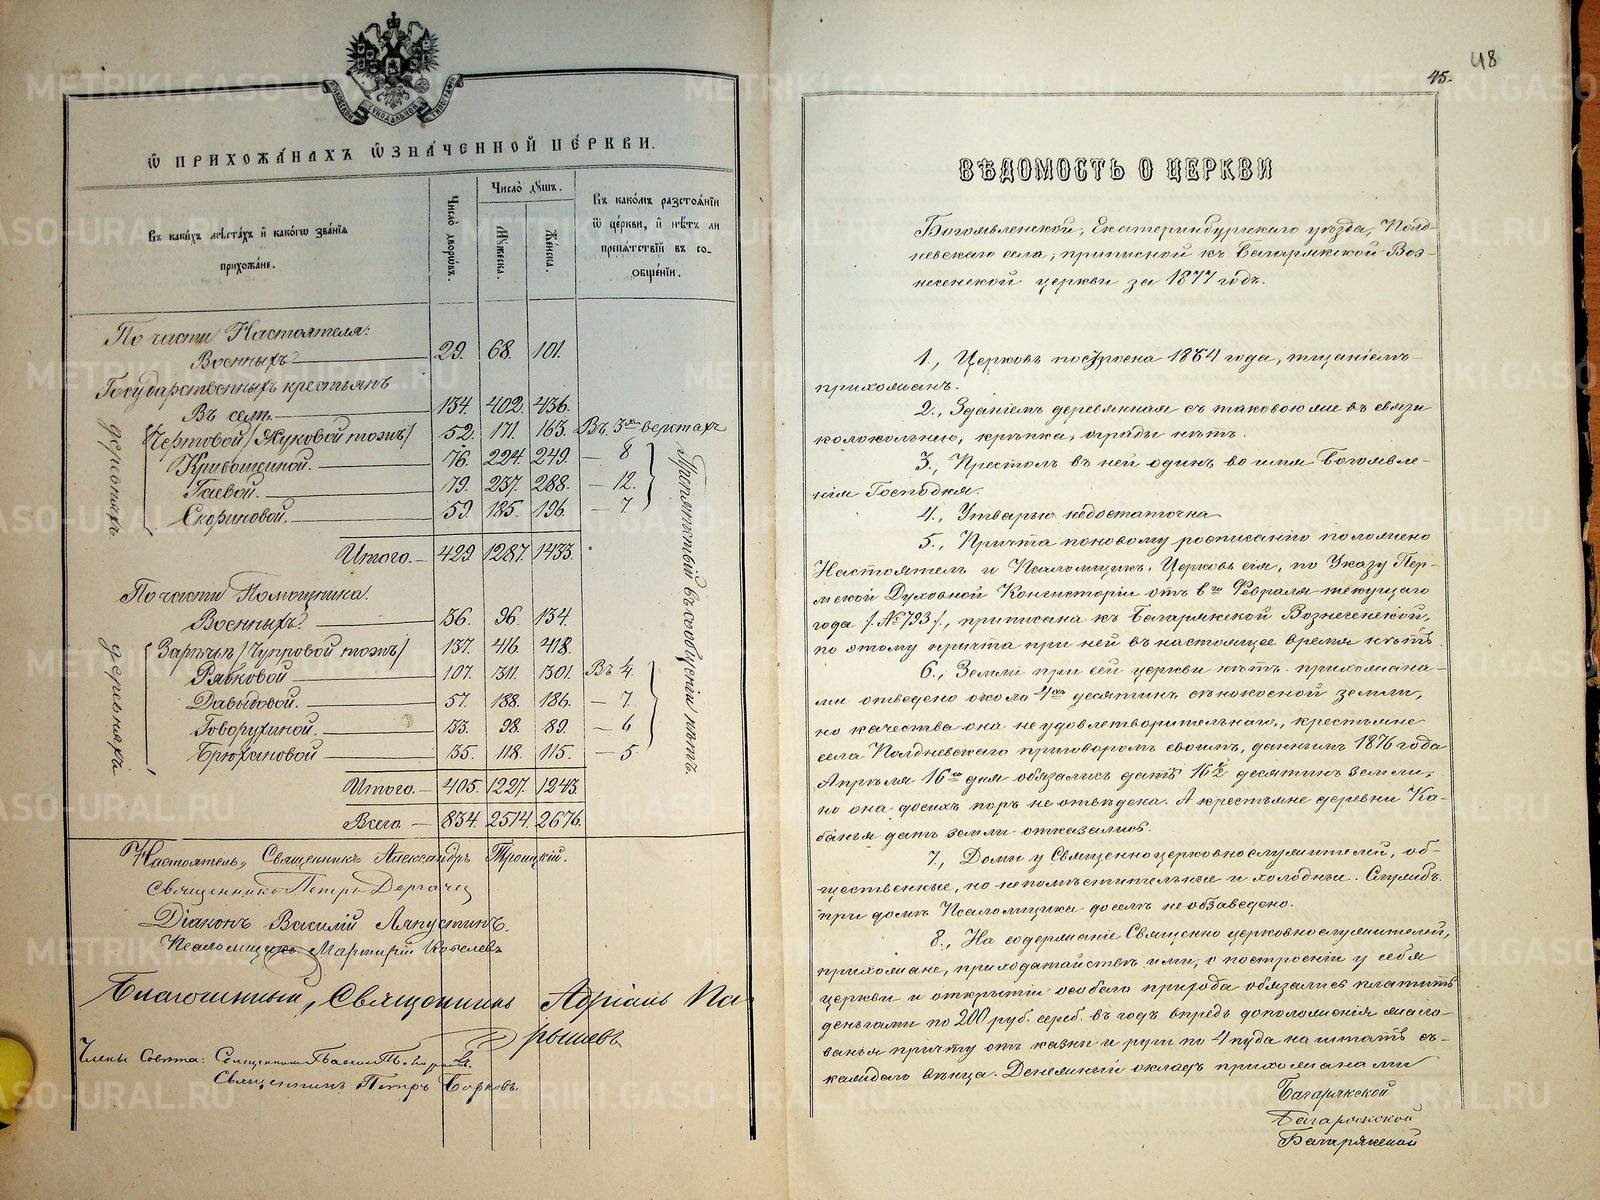 МОСКОВСКОЙ СѴНОДАЛЬНОЙ ТИПОГРАФІИ
Ѿ ПРИХОЖА́НАХЪ ѠЗНА́ЧЕННОЙ ЦЕ́РКВИ.
Въ каки́хъ мѣста́хъ и̂ како́гѡ зва́нїѧ
прихожа́не.
Число̀ дворѡ́въ.
Число̀ дꙋ́шъ.
Мꙋ́жеска.
Же́нска.
Въ како́мъ разстоѧ́нїи
ѿ це́ркви, и̂ нѣ́тъ ли
препѧ́тствїй въ со-
ѻбще́нїи.
По части Настоятеля:
Военныхъ 29. 68. 101.
Государственныхъ крестьянъ
Въ селѣ 134. 402. 436.
деревняхъ
Чертовой /Жуковой тожъ/ 52. 171. 163. Въ 3хъ верстахъ
Кривошеиной. 76. 224. 249. — 8
Гаевой. 79. 237. 288. — 12.
Скориновой. 59. 185. 196. — 7
Препятствій въ сообщеніи нѣтъ.
Итого. 429 1287. 1433.
По части Помощника.
Военныхъ. 36. 96. 134.
деревняхъ
Зарѣчья /Чупровой тожъ/ 137. 416. 418.
Рябковой 107. 311. 301. Въ 4.
Давыдовой. 57. 188. 186. — 7.
Говорухиной. 33. 98. 89. — 6
Брюхановой 35. 118. 115. — 5
Итого. 405. 1227. 1243.
Всего. 834. 2514. 2676.
Настоятель, Священникъ Александръ Троицкій.
Священникъ Петръ Дергачев
Діаконъ Василій Ляпустинъ.
Псаломщикъ Мартирій Киселевъ
Благочинный, Священникъ Адріанъ Па-
рышевъ
Члены Совѣта: Священникъ
Священникъ Петръ
48
45.
ВѢДОМОСТЬ О ЦЕРКВИ
Богоявленской, Екатеринбургскаго уѣзда, Полд-
невскаго села, приписной къ Багарякской Воз-
несенской церкви за 1877 годъ.
1., Церковь построена 1864 года, тщаніемъ
прихожанъ.
2., Зданіемъ деревянная съ таковою же въ связи
колокольнею, крѣпка, ограды нѣтъ.
3., Престолъ въ ней одинъ во имя Богоявле-
нія Господня.
4., Утварью недостаточна
5., Причта по новому росписанію положено
Настоятель и Псаломщикъ. Церковь сія, по Указу Пер-
мской Духовной Консисторіи отъ 8го Февраля текущаго
года /№ 793/, приписана къ Багарякской Вознесенской,
по этому причта при ней въ настоящее время нѣтъ
6., Земли при сей церкви нѣтъ. прихожана-
ми отведено около 4хъ десятинъ сѣнокосной земли,
но качества она неудовлетворительнаго, крестьяне
села Полдневскаго приговоромъ своимъ, даннымъ 1876 года
Апрѣля 16го дня обязались дать 16½ десятинъ земли,
но она до сихъ поръ не отведена. А крестьяне деревни Ка-
баньи дать земли отказались.
7., Домы у Священноцерковнослужителей, об-
щественные, но непомѣстительные и холодные. Службъ
при домѣ Псаломщика доселѣ не обзаведено.
8., На содержаніе Священно церковнослужителей,
прихожане, при ходатайствѣ ими, о построеніи у себя
церкви и открытіи особаго прихода обязались платить
деньгами по 200 руб. сереб. въ годъ впредь до положенія жало-
ванья причту отъ казны и руги по 4 пуда на штатъ съ
каждаго вѣнца. Денежный окладъ прихожанами
Багарякской
Багарякской
Багарякской
METRIKI.GASO-URAL.RU